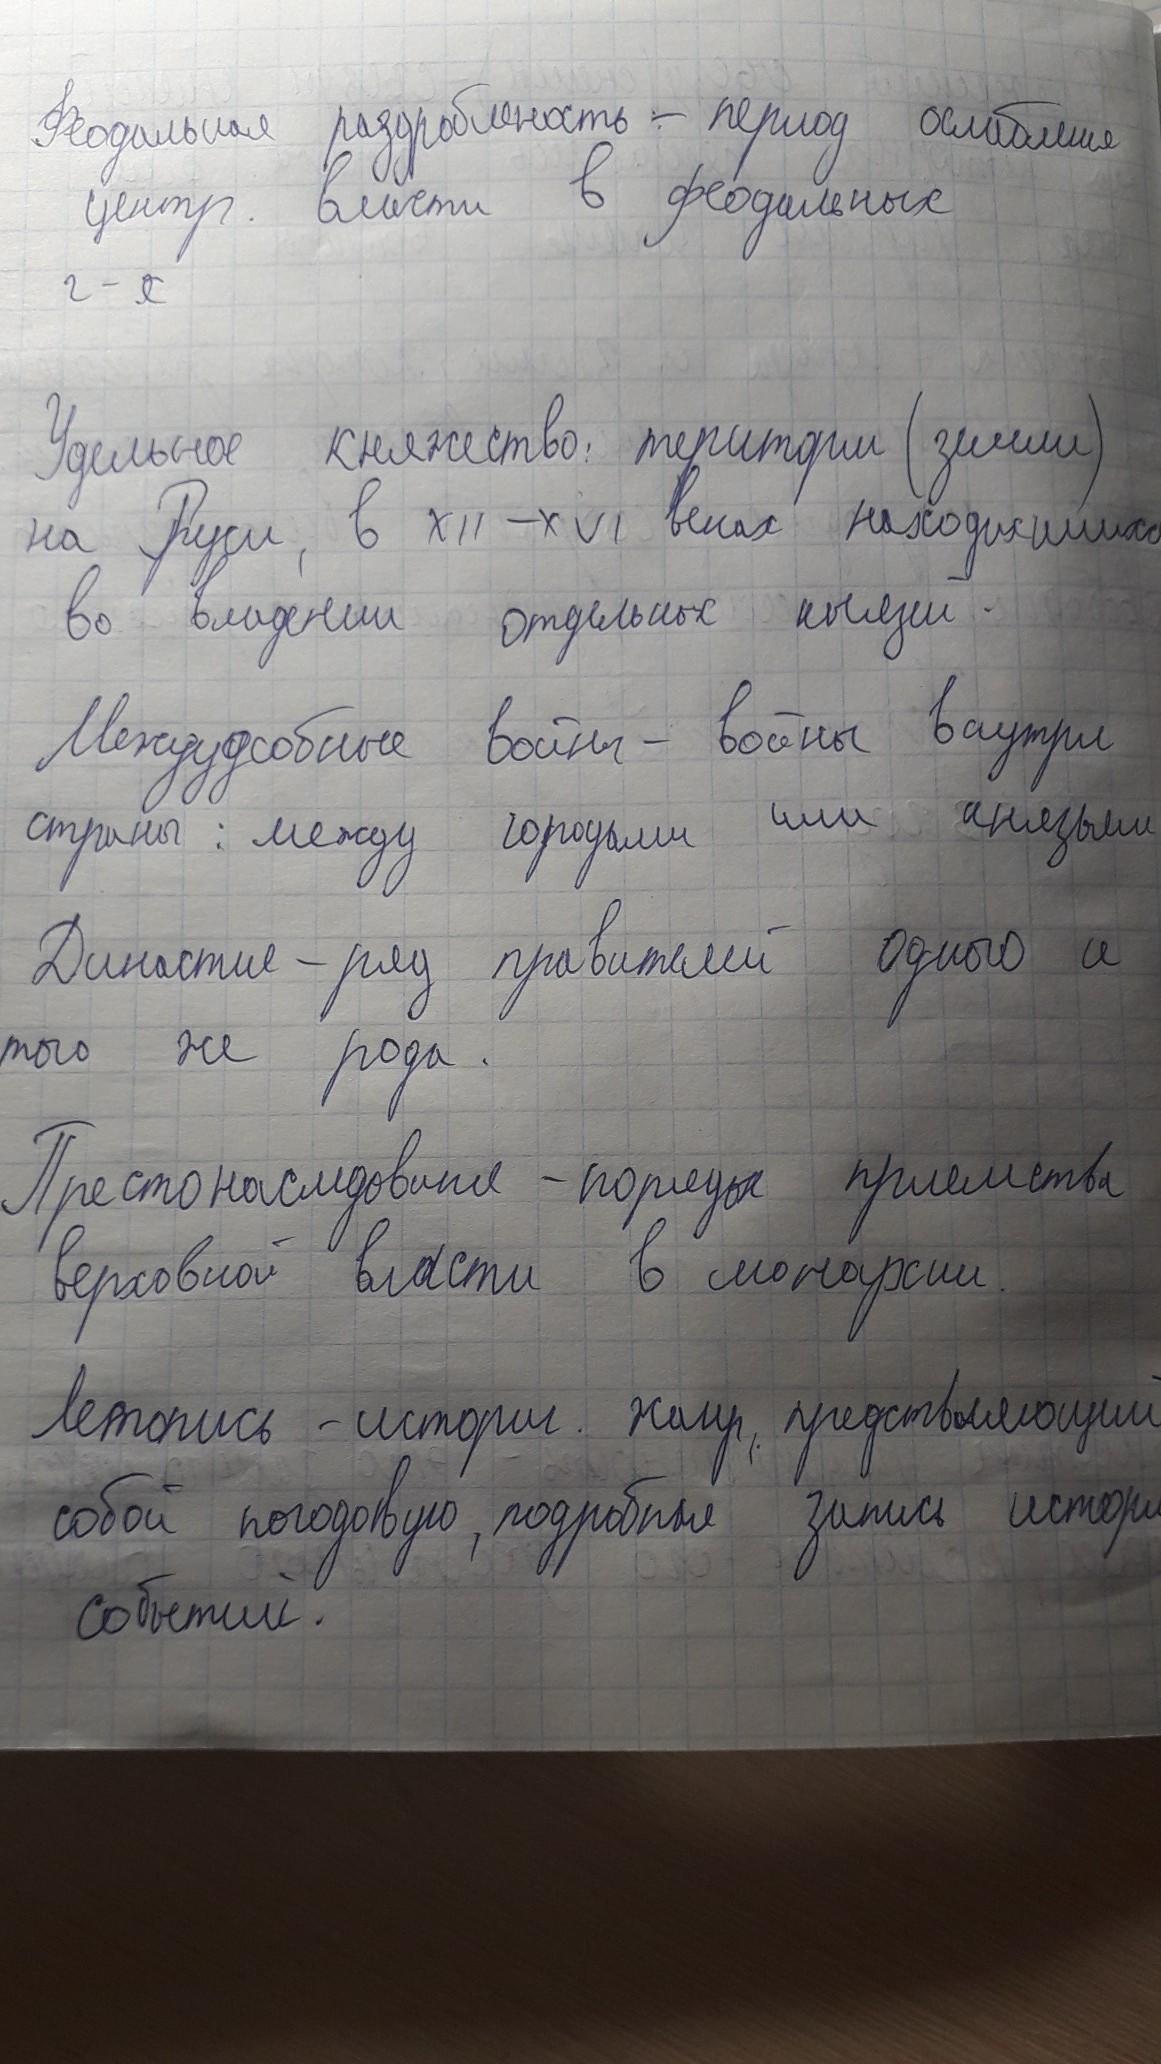 Феодальная раздробленость - период ослабления
центр. власти в феодальных
г-х
Удельное княжество: територии (земли)
на Руси, в XII-XVI веках находихшихся
во владении отдельных князей.
Междуусобные войны - войны внутри
страны: между городами или князьями
Династия - ряд правителей одного и
того же рода.
Престонаследование - порядок приемства
верховной власти в монархии.
Летопись - историч. жанр, представляющий
собой погодовую, подробная запись историч
событий.